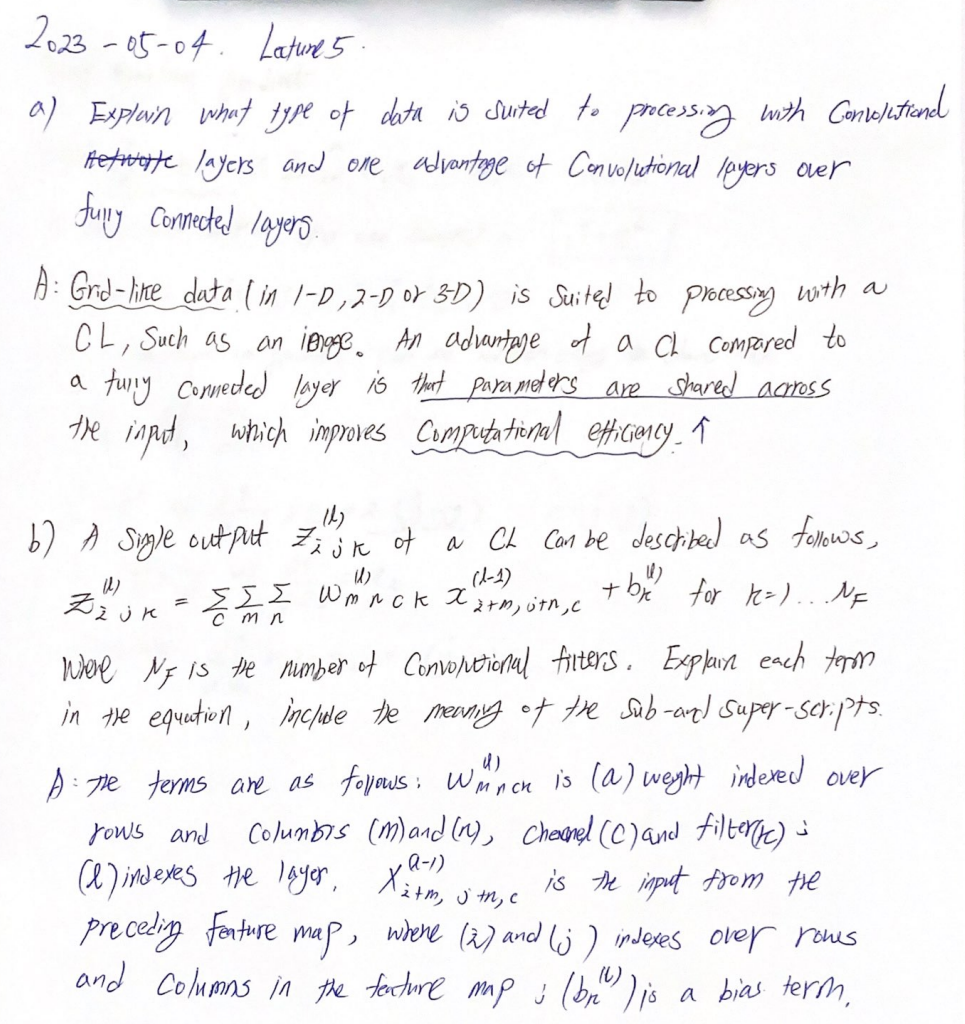 2023-05-04. Lecture 5.
a) Explain what type of data is suited to processing with Convolutional
N̶e̶t̶w̶o̶r̶k̶ layers and one advantage of Convolutional layers over
fully Connected layers.
A: Grid-like data (in 1-D, 2-D or 3-D) is Suited to processing with a
CL, Such as an image. An advantage of a CL compared to
a fully connected layer is that parameters are shared acrross
the input, which improves Computational efficiency. ↑
b) A Single output z_{ijk}^{(l)} of a CL Can be described as follows,
z_{ijk}^{(l)} = Σ_c Σ_m Σ_n w_{mnck}^{(l)} x_{i+m, j+n, c}^{(l-1)} + b_k^{(l)} for k=1...N_F
Where N_F is the number of Convolutional filters. Explain each term
in the equation, include the meaning of the Sub-and super-scripts.
A: The terms are as follows: w_{mnck}^{(l)} is (a) weight indexed over
rows and Columns (m) and (n), channel (C) and filter (k) ;
(l) indexes the layer, X_{i+m, j+n, c}^{(l-1)} is the input from the
preceding feature map, where (i) and (j) indexes over rows
and Columns in the feature map ; (b_k^{(l)}) is a bias term.